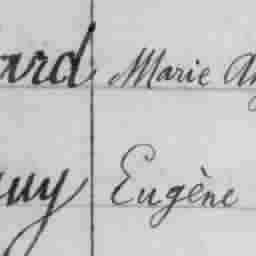 ard Marie An
uy Eugène